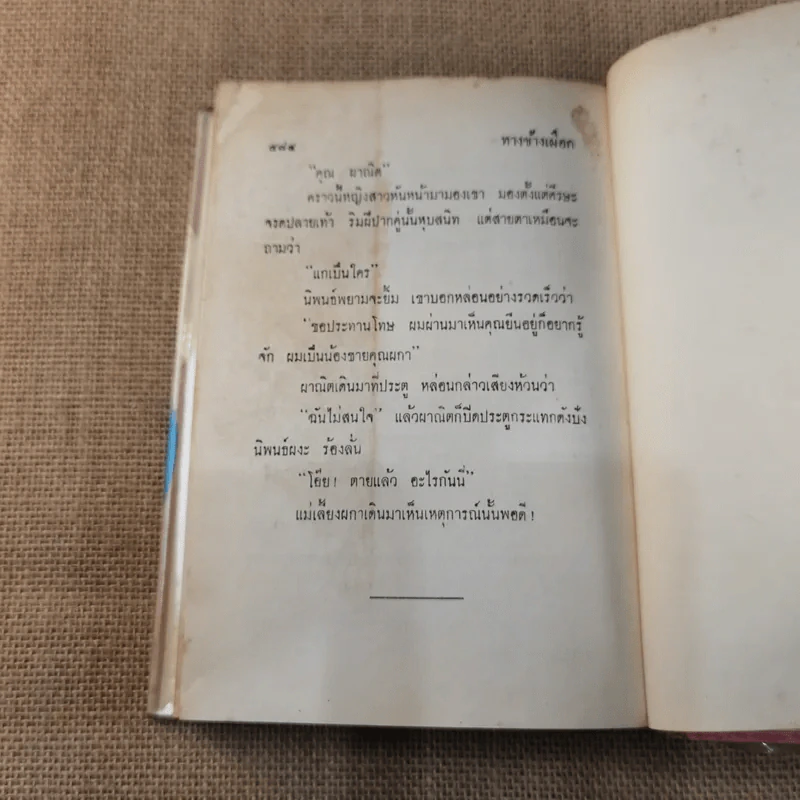 ๕๗๕ ทางช้างเผือก
"คุณ ผาณิต"
คราวนี้หญิงสาวหันหน้ามามองเขา มองตั้งแต่ศีรษะ
จรดปลายเท้า ริมฝีปากคู่นั้นหุบสนิท แต่สายตาเหมือนจะ
ถามว่า
"แกเป็นใคร"
นิพนธ์พยามจะยิ้ม เขาบอกหล่อนอย่างรวดเร็วว่า
"ขอประทานโทษ ผมผ่านมาเห็นคุณยืนอยู่ก็อยากรู้
จัก ผมเป็นน้องชายคุณผกา"
ผาณิตเดินมาที่ประตู หล่อนกล่าวเสียงห้วนว่า
"ฉันไม่สนใจ" แล้วผาณิตก็ปิดประตูกระแทกดังปัง
นิพนธ์ผงะ ร้องลั่น
"โอ๊ย! ตายแล้ว อะไรกันนี่"
แม่เลี้ยงผกาเดินมาเห็นเหตุการณ์นั้นพอดี!